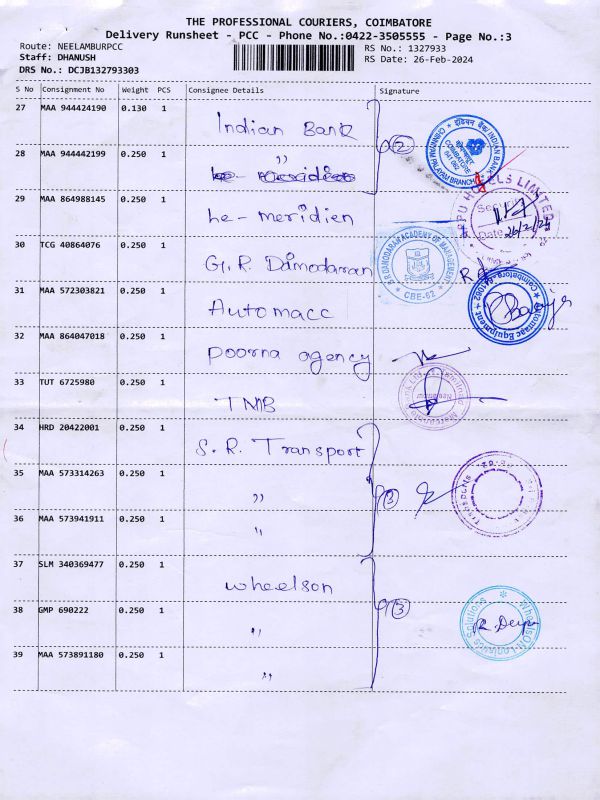 THE PROFESSIONAL COURIERS, COIMBATORE
Delivery Runsheet - PCC - Phone No.:0422-3505555 - Page No.:3
Route: NEELAMBURPCC
RS No.: 1327933
Staff: DHANUSH
RS Date: 26-Feb-2024
DRS No.: DCJB132793303
S No Consignment No Weight PCS Consignee Details Signature
27 MAA 944424190 0.130 1 Indian Bank
28 MAA 944442199 0.250 1 "
2
29 MAA 864988145 0.250 1 he-meridien
30 TCG 40864076 0.250 1 G.R. Damodaran
31 MAA 572303821 0.250 1 Automacc
32 MAA 864047018 0.250 1 poorna agency
33 TUT 6725980 0.250 1 TMB
34 HRD 20422001 0.250 1 S.R. Transport
35 MAA 573314263 0.250 1 "
3
36 MAA 573941911 0.250 1 "
37 SLM 340369477 0.250 1 wheelson
38 GMP 690222 0.250 1 "
3
39 MAA 573891180 0.250 1 "
इंडियन बैंक/ INDIAN BANK
COIMBATORE
641 062
HOTELS LIMITED
Date 26/2/24
G.R. DAMODARAN ACADEMY OF MANAGEMENT
CBE-62
Automaac Equipment
Coimbatore-641062
WheelsON Logistics Solutions